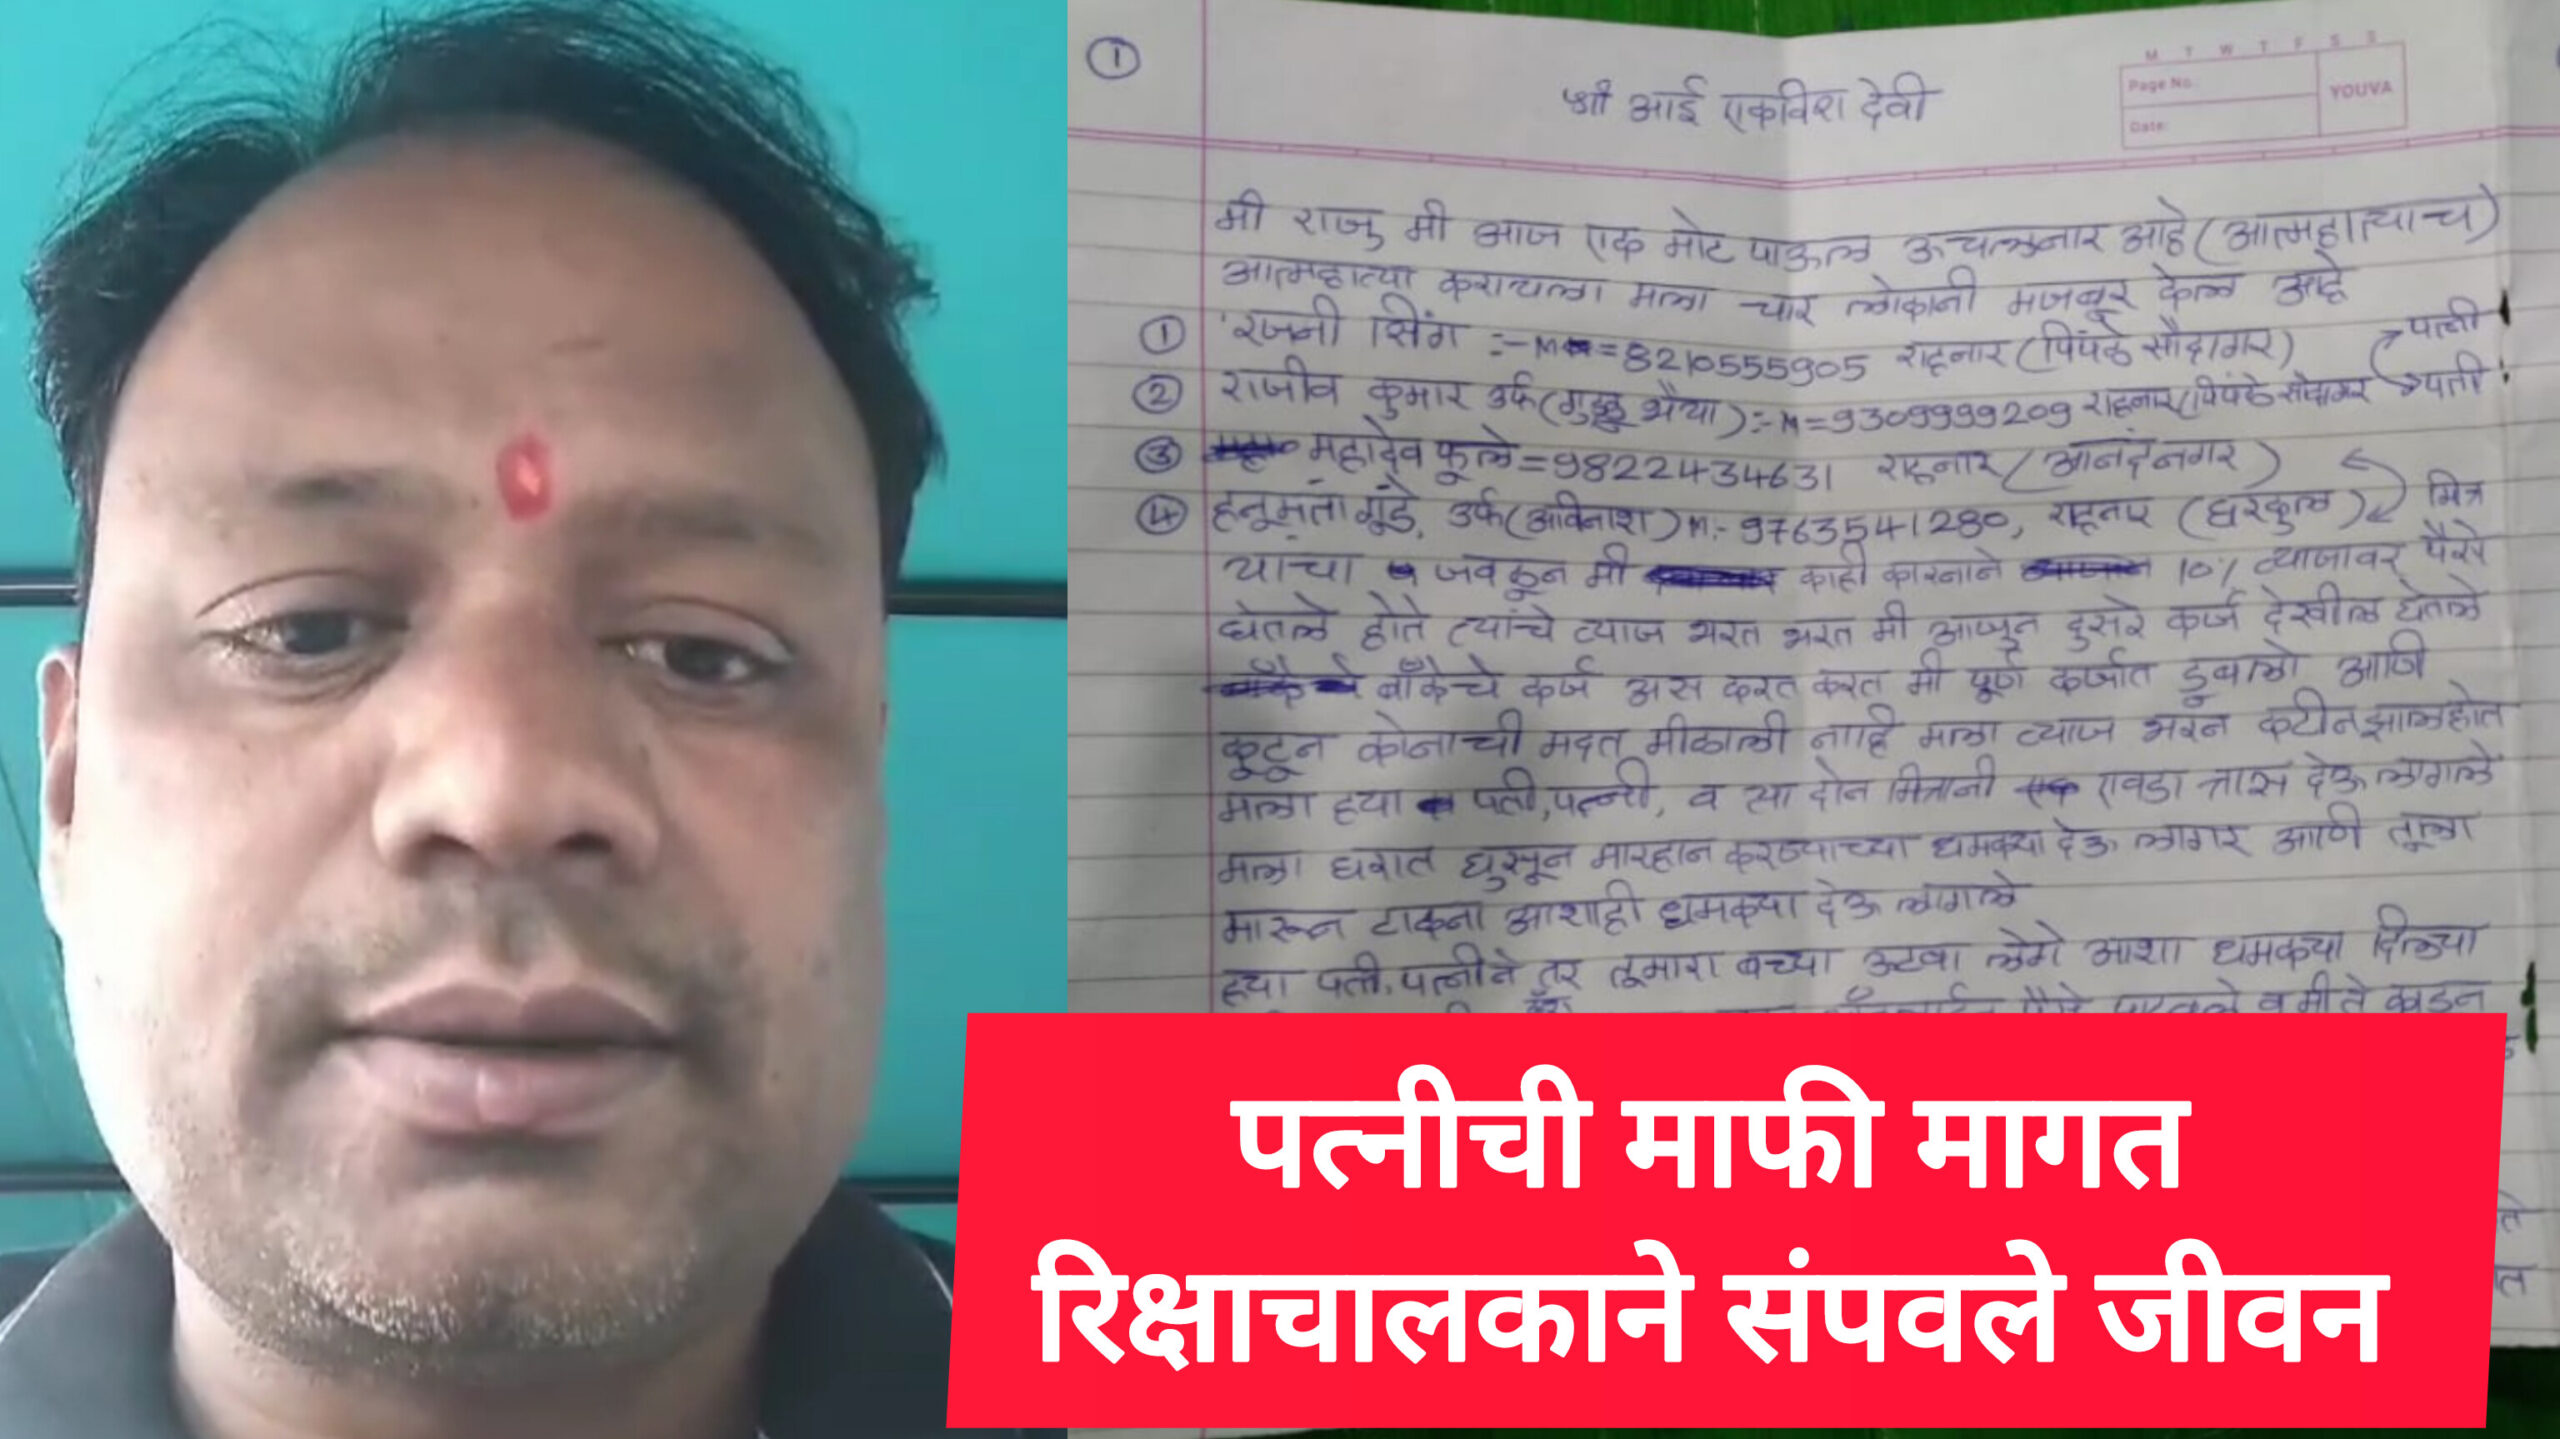 ①
श्री आई एकविरा देवी
M T W T F S S
Page No.
YOUVA
Date:
मी राजु मी आज एक मोट पाऊल ऊचलनार आहे (आत्महात्याच)
आत्महात्या करायला मला चार लोकानी मजबूर केल आहे
① रजनी सिंग :- M = 8210555905 राहनार (पिंपळे सौदागर) पत्नी
② राजीव कुमार उर्फ (गुड्डू भैया) :- M = 9309999209 राहनार (पिंपळे सौदागर पती
③ महादेव फूले = 9822434631 राहनार (आनंदनगर)
④ हनूमंता गूंडे, उर्फ (अविनाश) M:- 9763541280, राहनार (घरकुल) मित्र
यांचा जवळून मी काही कारनाने 10% व्याजावर पैसे
घेतले होते त्यांचे व्याज भरत भरत मी आजुन दुसरे कर्ज देखील घेतले
बँकेचे कर्ज अस करत करत मी पूर्ण कर्जात डूबालो आणि
कूटून कोनाची मदत मीळाली नाहि मला व्याज भरन कटीन झालहोत
मला हया पती, पत्नी, व त्या दोन मित्रानी एवडा त्रास देऊ लागले
मला घरात घुसून मारहान करण्याच्या धमक्या देऊ लागले आणि तूला
मारून टाकना आशाही धमक्या देऊ लागले
हया पती, पत्नीने तर तूमारा बच्चा ऊटवा लेगे आशा धमकया दिल्या
पत्नीची माफी मागत
रिक्षाचालकाने संपवले जीवन